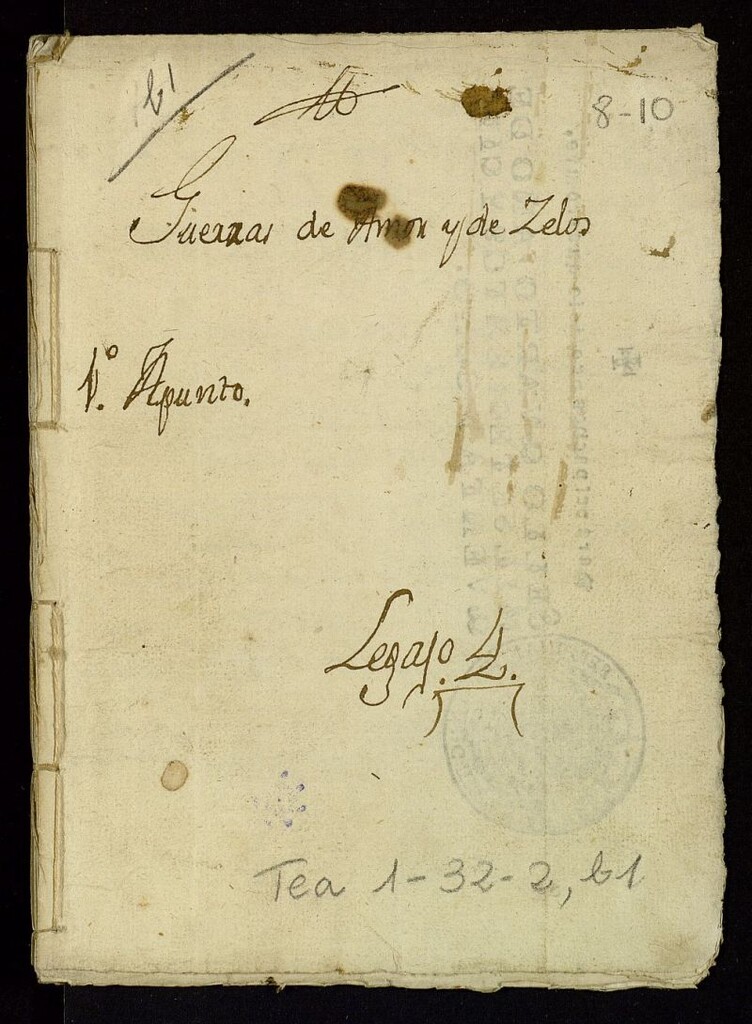 b1
8-10
Guerras de Amor y de Zelos
1.º Apunto.
Legajo. 4.
Tea 1-32-2, b1